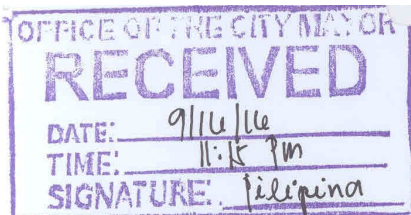 OFFICE OF THE CITY MAYOR
RECEIVED
DATE: 9/16/16
TIME: 11:15 PM
SIGNATURE: Filipina